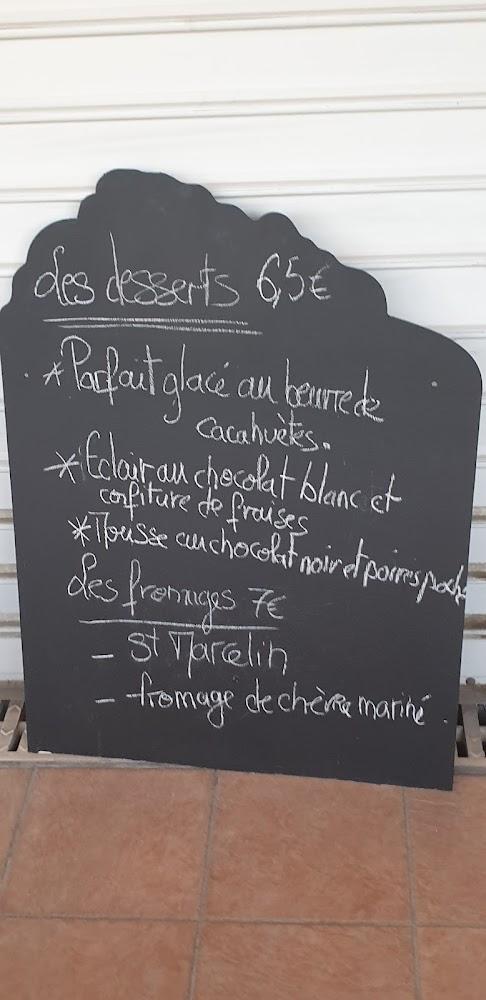 Les desserts 6,5€
* Parfait glacé au beurre de
cacahuètes.
* Eclair au chocolat blanc et
confiture de fraises
* Mousse au chocolat noir et poires poché
Les fromages 7€
- St Marcelin
- fromage de chèvre mariné